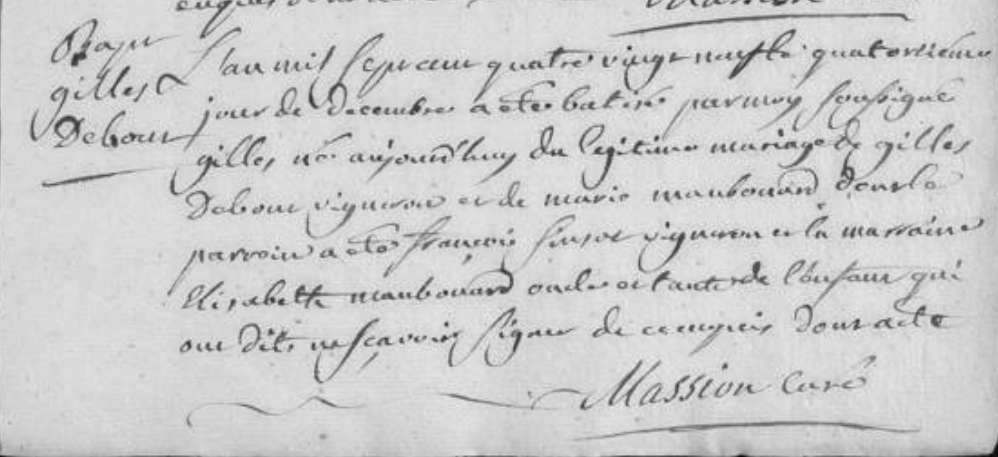 enquis de
Massion
Bapt
gilles
Debour
L'an mil sept cent quatre vingt neuf le quatorzieme
jour de decembre a été batisé par moy soussigné
gilles né aujourd'huy du legitime mariage de gilles
Debour vigneron et de marie maubouard dont le
parrein a été françois vigneron et la marraine
Elisabette maubouard oncle et tante de l'enfant qui
ont dits ne sçavoir signer de ce enquis dont acte
Massion Curé